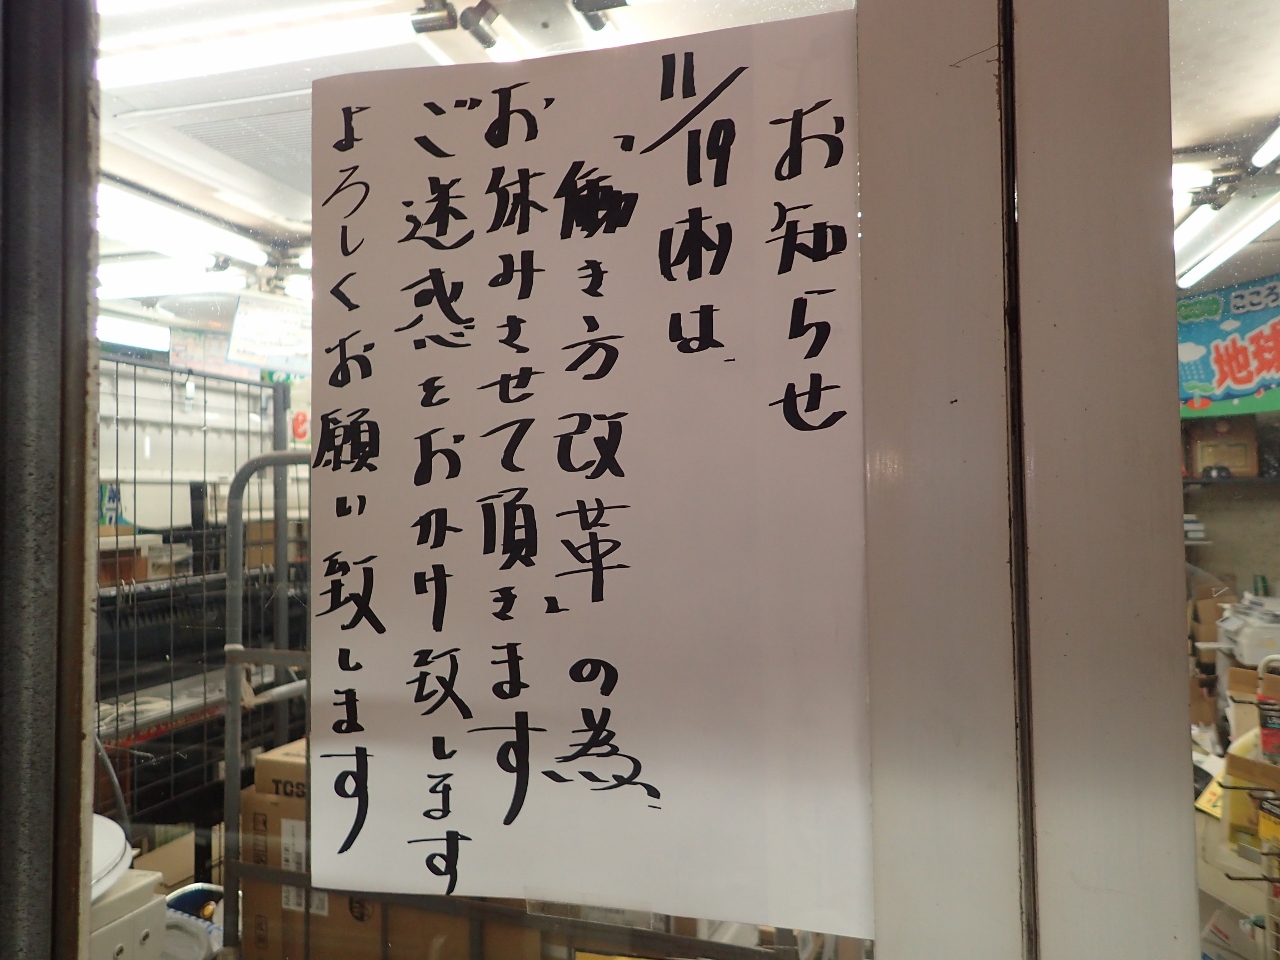 お知らせ
11/19(木)は、
「働き方改革」の為、
お休みさせて頂きます
ご迷惑をおかけ致します
よろしくお願い致します
こころ
地球